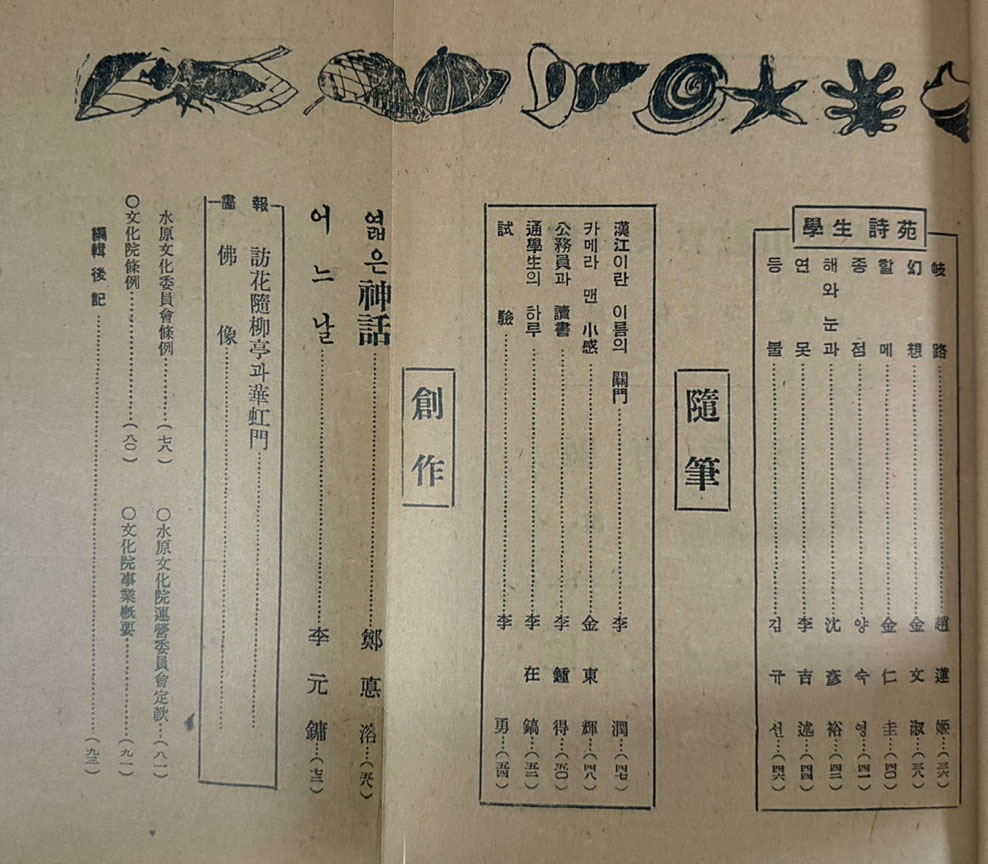 學生詩苑
岐路……趙蓮姬…(三六)
幻想……金文淑…(三八)
할메……金仁圭…(四〇)
종점……양숙영…(四一)
해와 눈과……沈彥裕…(四二)
연못……李吉述…(四四)
등불……김규선…(四六)
隨筆
漢江이란 이름의 關門……李潤…(四七)
카메라 맨 小感……金東輝…(四八)
公務員과 讀書……李鍾得…(五〇)
通學生의 하루……李在鎬…(五二)
試驗……李勇…(五四)
創作
엷은 神話……鄭悳溶…(五八)
어느날……李元鏞…(七三)
畵報
訪花隨柳亭과 華虹門……
佛像……
水原文化委員會條例……(七八)
〇水原文化院運營委員會定款…(八一)
〇文化院條例……(八〇)
〇文化院事業槪要……(九一)
編輯後記……(九三)